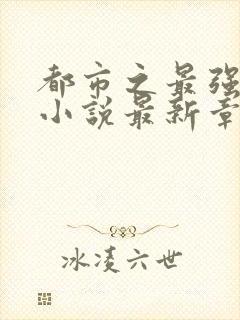 都市之最强
小说最新章
冰凌六世